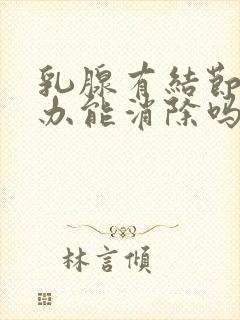 乳腺有結節
办能消除吗
林言傾